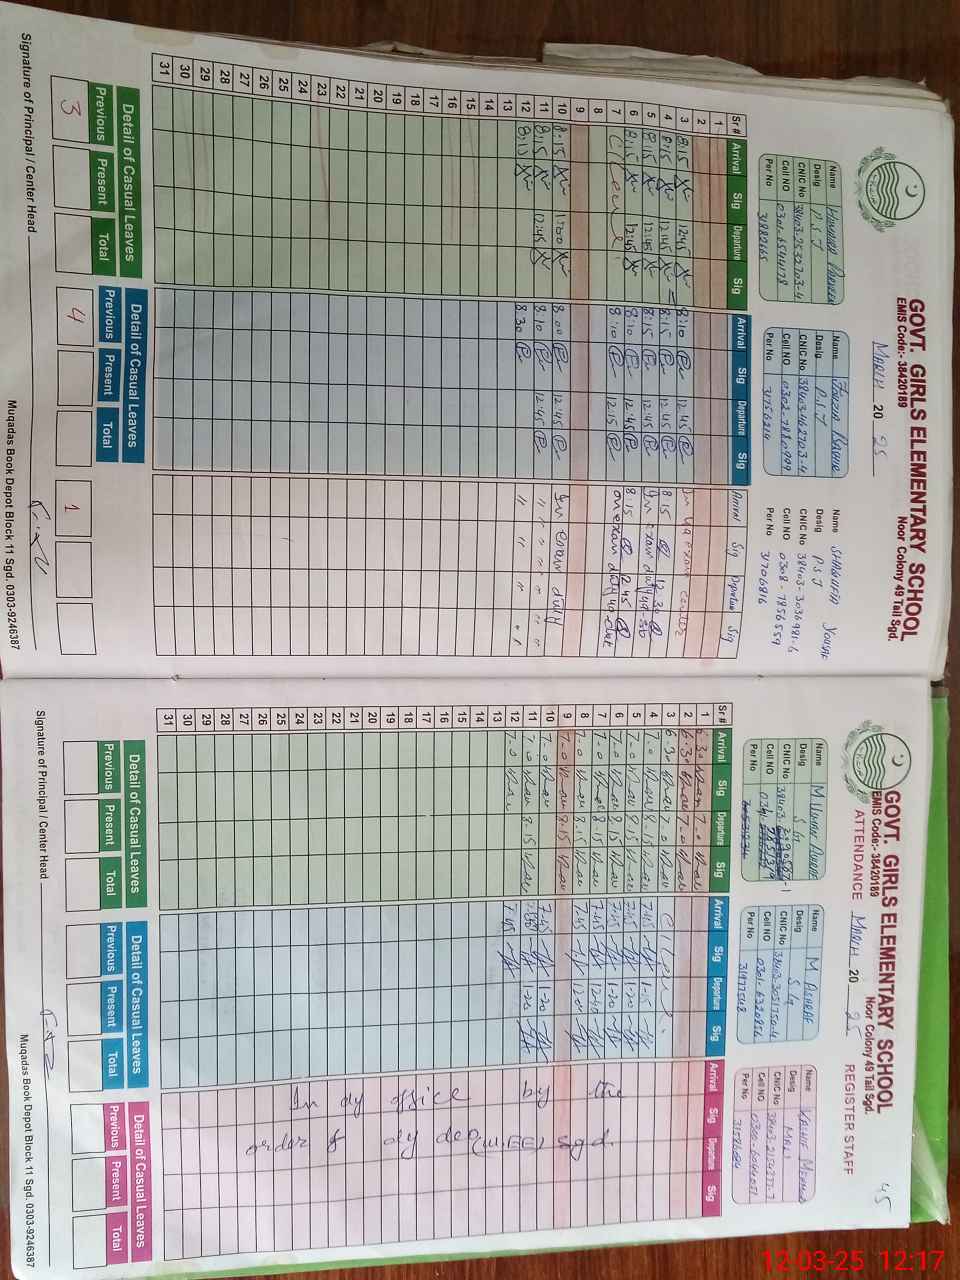 GOVT. GIRLS ELEMENTARY SCHOOL
EMIS Code:- 38420189
Noor Colony 49 Tail Sgd.
MARCH 20 25
Name
Desig P.S.T
CNIC No 38403-2532703-4
Cell NO 0301-6544178
Per No 31882665
Name
Desig P.S.T
CNIC No
Cell NO 0302-7880999
Per No 31756214
Name SHAGUFTA YOUSAF
Desig P.S.T
CNIC No 38403-3036981-6
Cell NO 0308-7856559
Per No 31706816
Sr # Arrival Sig Departure Sig Arrival Sig Departure Sig Arrival Sig Departure Sig
1
2
3 8:15 12:45 8:10 12:45
4 8:15 12:45 8:15 12:45 8:15 12:30
5 8:15 12:45 8:15 12:45 In exam duty
6 8:15 12:45 8:10 12:45 8:15 12:45
7 C Leave 8:10 12:15 on exam duty
8
9
10 8:15 1:00 8:00 12:45 In exam duty
11 8:15 12:45 8:10 12:45 " " " " "
12 8:15 8:30 " " " "
13
14
15
16
17
18
19
20
21
22
23
24
25
26
27
28
29
30
31
Detail of Casual Leaves Detail of Casual Leaves
Previous Present Total Previous Present Total
3 4 1
Signature of Principal / Center Head
Muqadas Book Depot Block 11 Sgd. 0303-9246387
45
GOVT. GIRLS ELEMENTARY SCHOOL
EMIS Code:- 38420189
Noor Colony 49 Tail Sgd.
ATTENDANCE MARCH 20 25 REGISTER STAFF
Name
Desig
CNIC No
Cell NO
Per No
Name M ASHRAF
Desig
CNIC No
Cell NO 0301-6320856
Per No 31977548
Name
Desig MALI
CNIC No
Cell NO
Per No
Sr # Arrival Sig Departure Sig Arrival Sig Departure Sig Arrival Sig Departure Sig
1 6-30 7-0
2 6-30 7-0
3 6-30 7-0 C Leave
4 7-0 8-15 7-45 1-15
5 7-0 8-15 7-45 1-20
6 7-0 8-15 7-45 1-20
7 7-0 8-15 7-45 12-40
8 7-0 8-15 7-45
9 7-0 8-15
10 7-0 7-45 1-20
11 7-0 8-15 1-20
12 7-0 7-45
13
14
15
16
17
18
19
20
21
22
23
24
25
26
27
28
29
30
31
In dy office by the
order of dy deo (W.EE) sgd.
Detail of Casual Leaves Detail of Casual Leaves Detail of Casual Leaves
Previous Present Total Previous Present Total Previous Present Total
Signature of Principal / Center Head
Muqadas Book Depot Block 11 Sgd. 0303-9246387
12-03-25 12:17